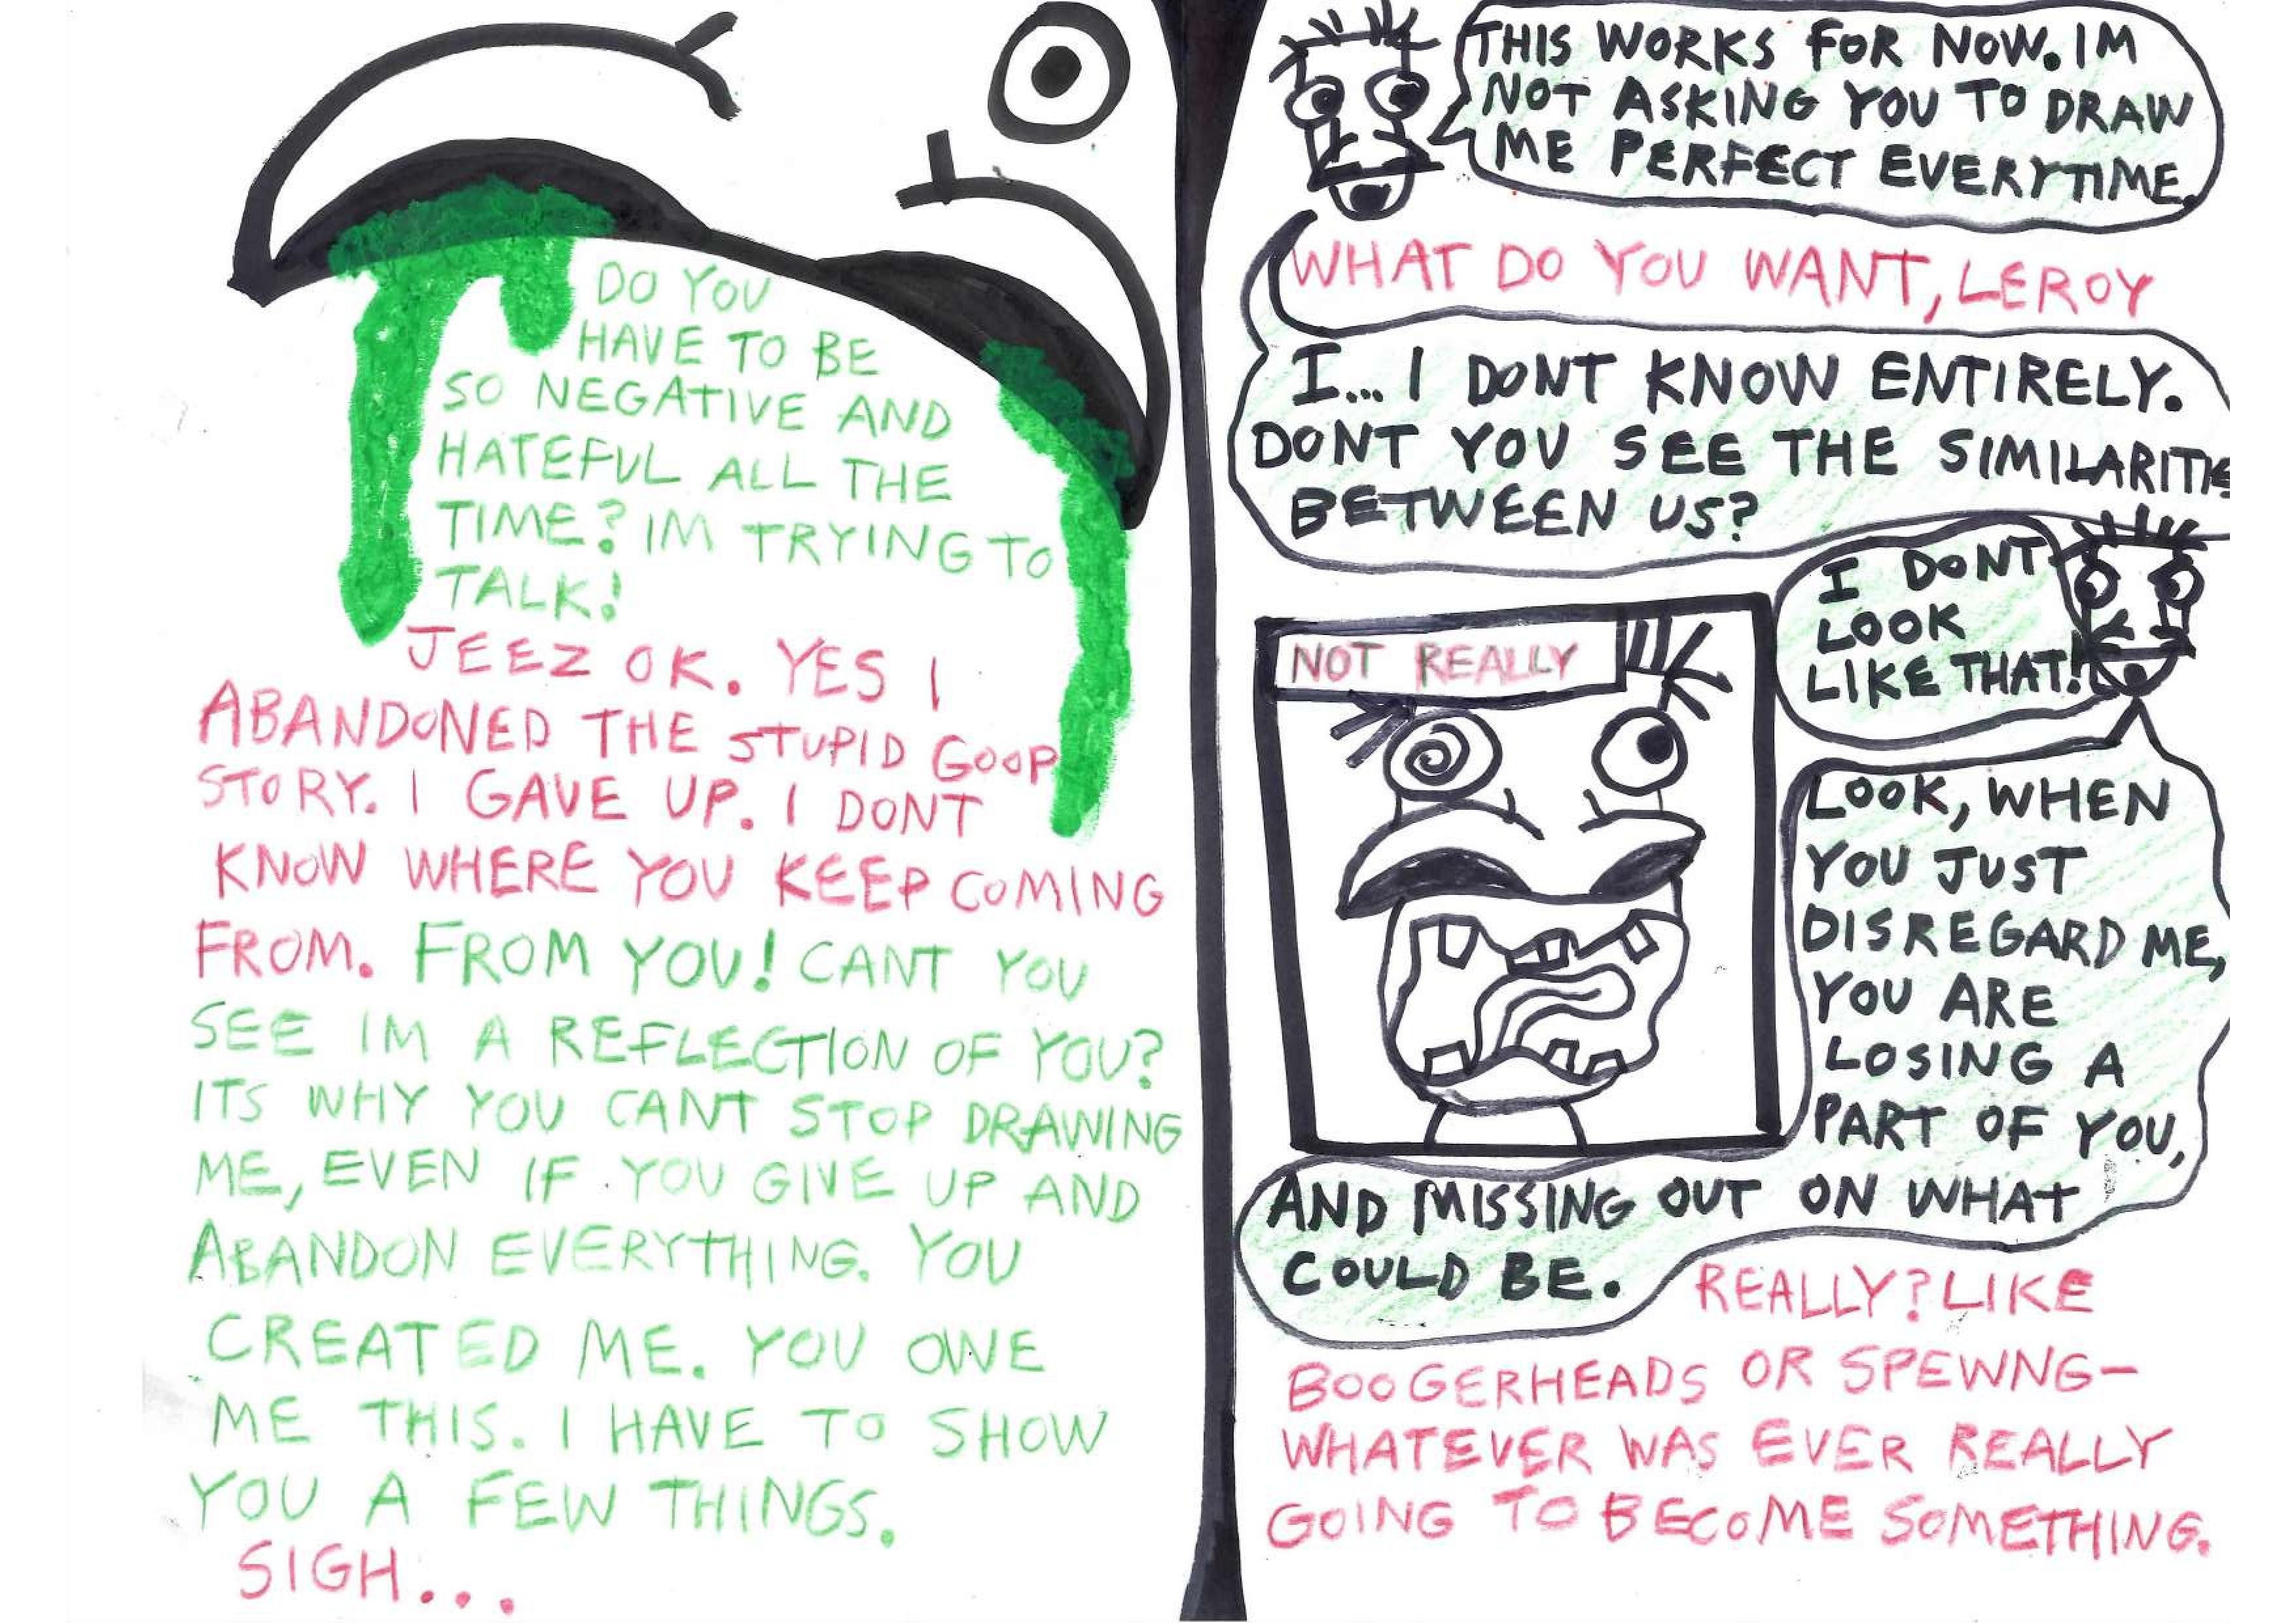 DO YOU
HAVE TO BE
SO NEGATIVE AND
HATEFUL ALL THE
TIME? IM TRYING TO
TALK!
JEEZ OK. YES I
ABANDONED THE STUPID GOOP
STORY. I GAVE UP. I DONT
KNOW WHERE YOU KEEP COMING
FROM. FROM YOU! CANT YOU
SEE IM A REFLECTION OF YOU?
ITS WHY YOU CANT STOP DRAWING
ME, EVEN IF YOU GIVE UP AND
ABANDON EVERYTHING. YOU
CREATED ME. YOU OWE
ME THIS. I HAVE TO SHOW
YOU A FEW THINGS.
SIGH...
THIS WORKS FOR NOW. IM
NOT ASKING YOU TO DRAW
ME PERFECT EVERYTIME.
WHAT DO YOU WANT, LEROY
I... I DONT KNOW ENTIRELY.
DONT YOU SEE THE SIMILARITIE
BETWEEN US?
NOT REALLY
I DONT
LOOK
LIKE THAT!
LOOK, WHEN
YOU JUST
DISREGARD ME,
YOU ARE
LOSING A
PART OF YOU,
AND MISSING OUT ON WHAT
COULD BE.
REALLY? LIKE
BOOGERHEADS OR SPEWNG-
WHATEVER WAS EVER REALLY
GOING TO BECOME SOMETHING.